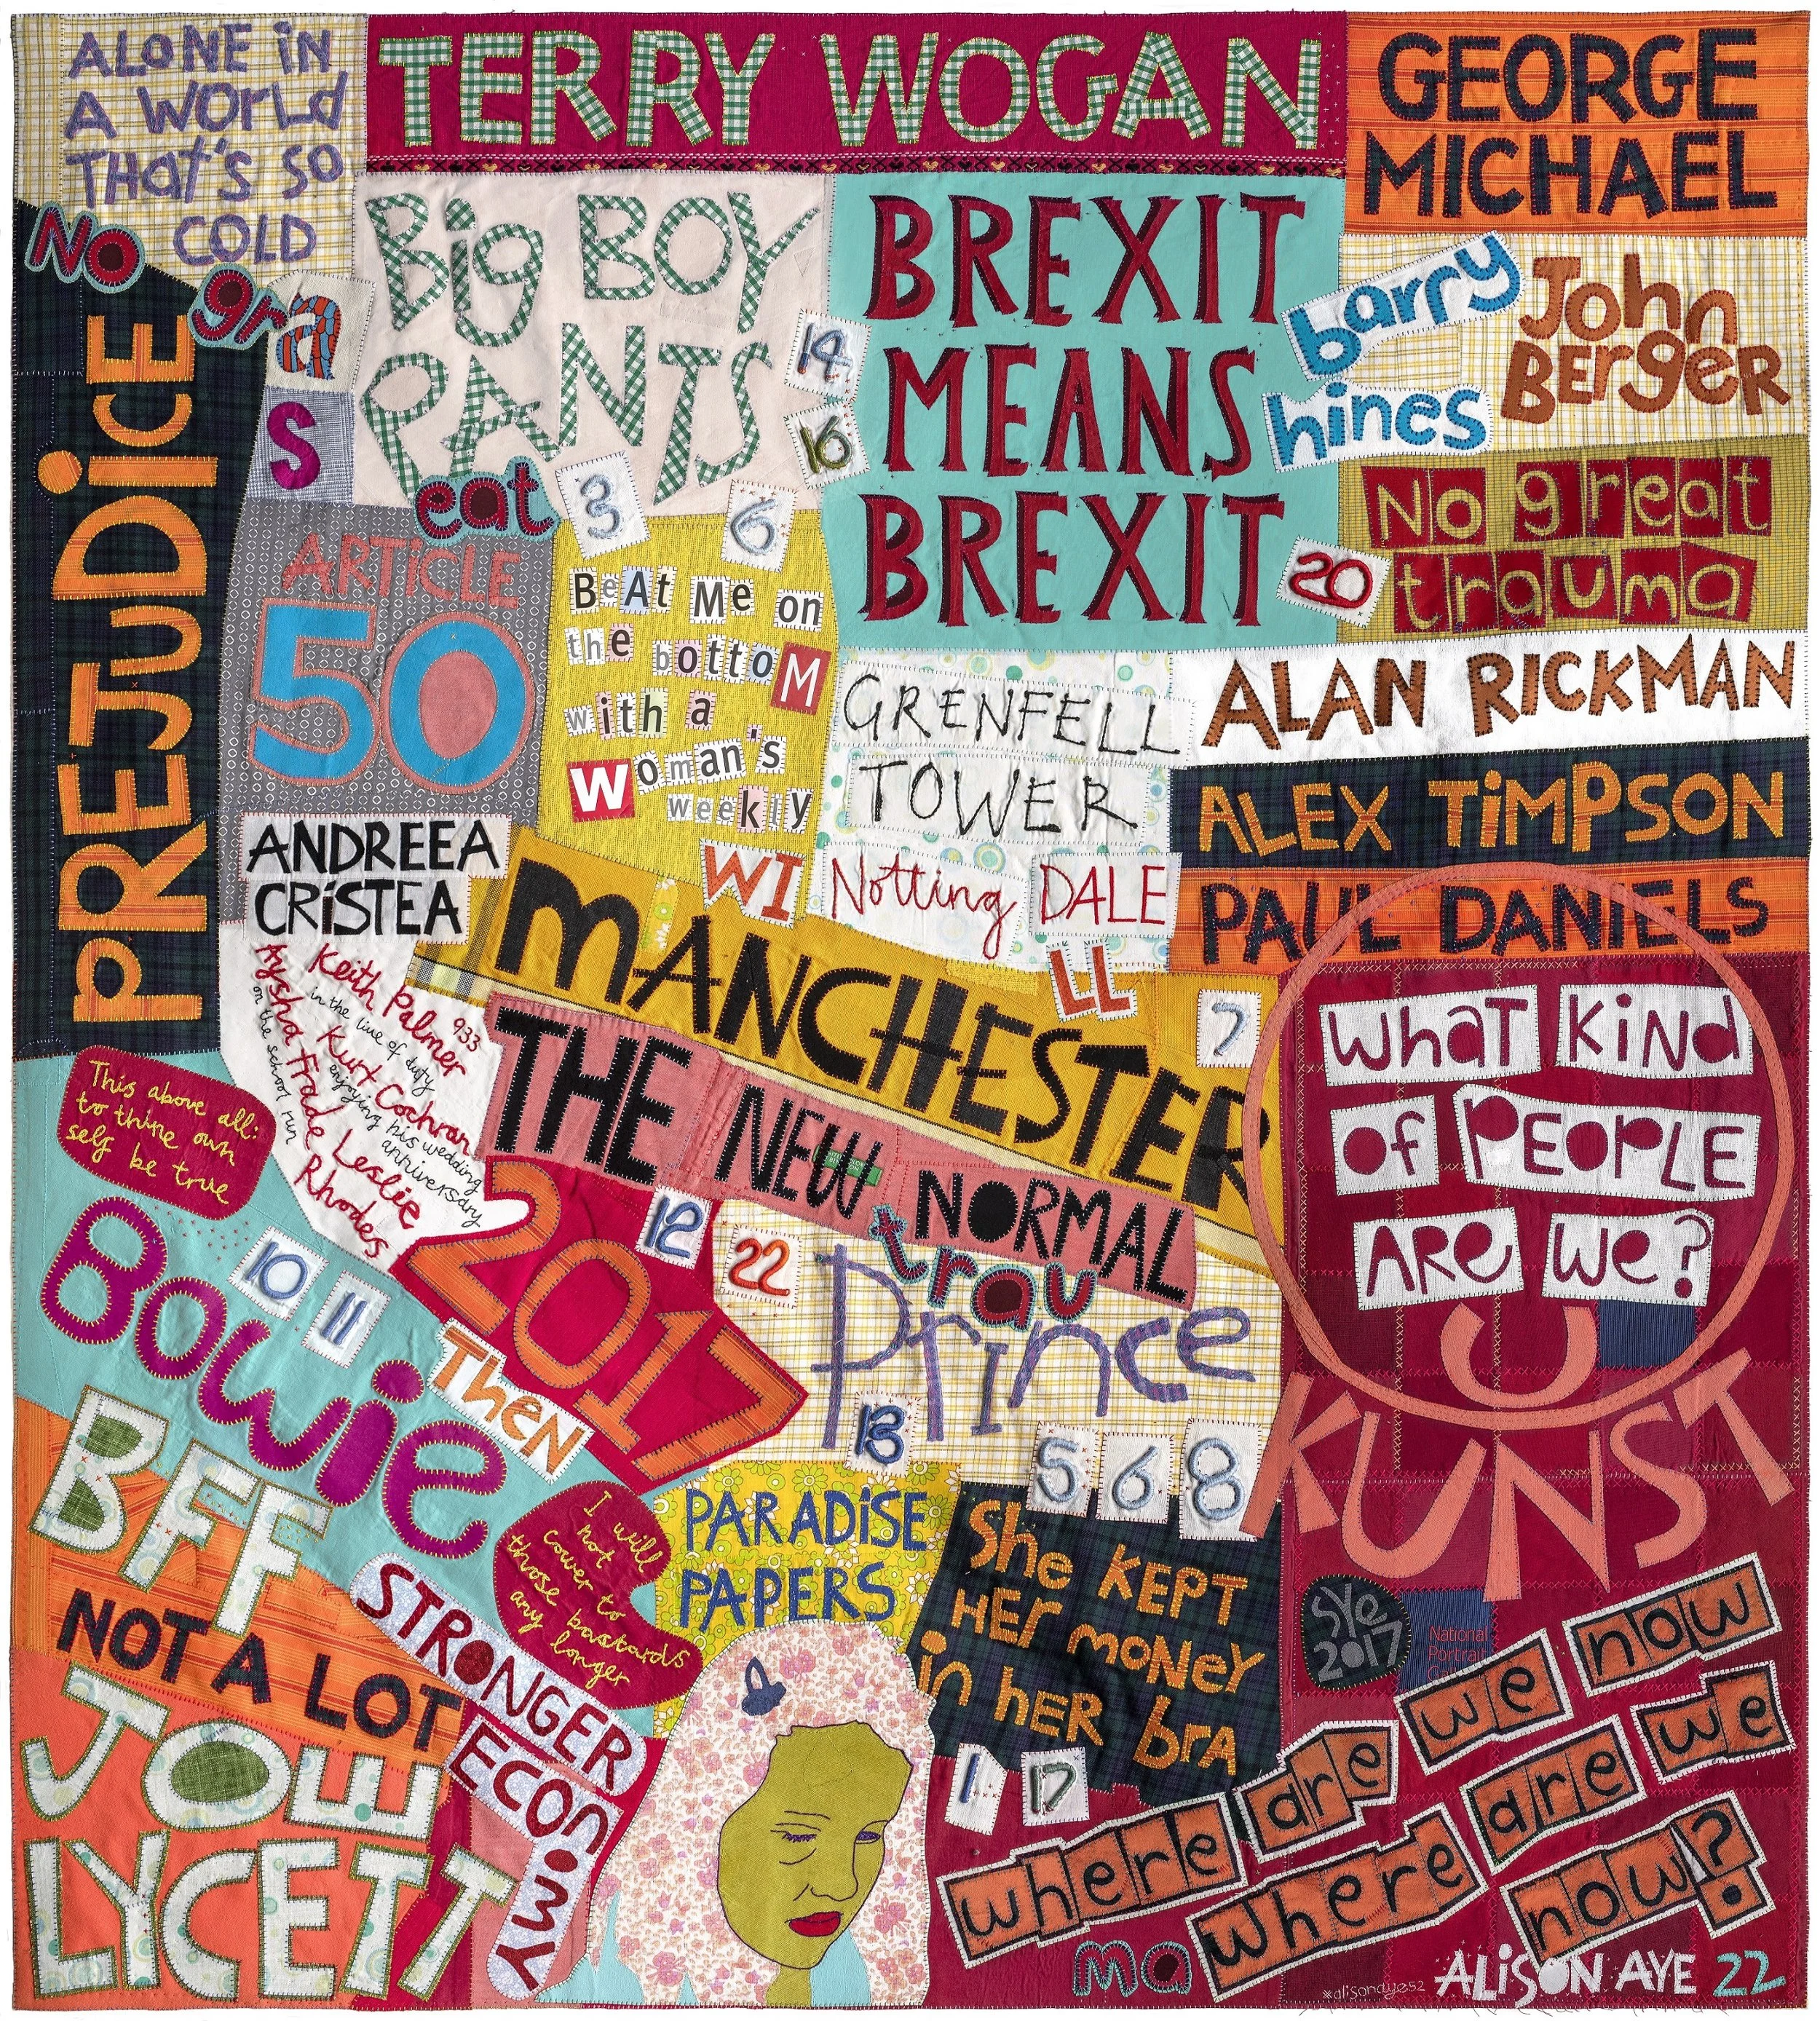 ALONE iN
A WORLd
THAt's SO
COLD
TERRY WOGAN
GEORGE
MICHAEL
NO
gra
s
PREJUDiCE
Big BOY
PANTS
eat
14
16
3
6
BREXIT
MEANS
BREXIT
barry
hines
John
BERgeR
No great
trauma
20
ARTiCLE
50
BeAt Me on
the bottoM
with a
Woman's
weekly
WI
GRENFELL
TOWER
Notting DALE
LL
ALAN RICKMAN
ALEX TiMPSON
PAUL DANIELS
ANDREEA
CRiSTEA
Keith Palmer 933
in the line of duty
Kurt Cochran
enjoying his wedding
anniversary
Aysha Frade
on the school run
Leslie
Rhodes
MANCHESTER
7
THE NEW NORMAL
WhaT KiNd
of PEOPLE
ARe We?
This above all:
to thine own
self be true
Bowie
10
11
2017
THeN
12
22
trau
Prince
13
5 6 8
U
KUNST
BFF
NOT A LOT
JOE
LYCETT
STRONGER
ECONOMY
I will
not
cower to
those bastards
any longer
PARADiSE
PAPERS
She KEPT
HEr moNeY
in hER brA
1
17
SYe
2017
National
Portrait
where are we now
where are we
now?
ma
*alisonaye52
ALiSON AYE 22